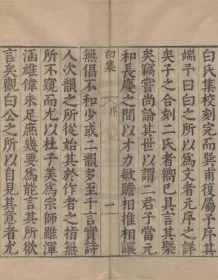 白氏集校刻完而巽甫復屬予序其
端予曰白之所以爲文者元序之詳
矣予之合刻二氏者嚮已具言其槩
矣竊嘗尚論其世以謂二君子當元
和長慶之間以才力敏贍相推相讓
白集 序 一
無倡不和少或二韻多至千言實詩
人次韻之所從始其於作者之指無
所不窺而尤以杜子美爲宗師雖渾
涵雄偉未足庶幾要爲能言其所欲
言矣觀白公之所以自見其意者尤